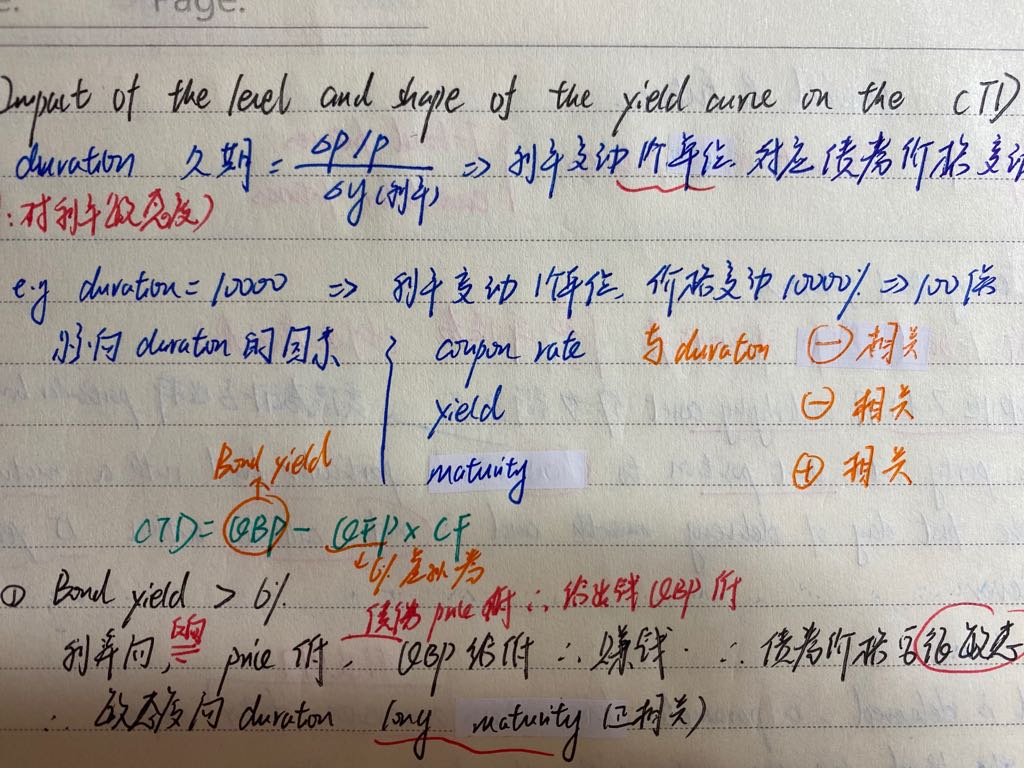 Page:
Impact of the level and shape of the yield curve on the CTD
duration 久期 = ΔP/P / Δy(利率) ⇒ 利率变动1个单位, 对应债券价格变动
: 对利率敏感度)
e.g duration = 10000 ⇒ 利率变动1个单位, 价格变动10000% ⇒ 100倍
影响duration的因素 { coupon rate 与duration ⊖ 相关
yield ⊖ 相关
Bond yield
maturity ⊕ 相关
CTD = QBP - QFP × CF
6% 虚拟券
① Bond yield > 6%
债券 price 价 ∴ 给出钱 QBP
利率 反向, price, QBP ∴ 赚钱. ∴ 债券价格 很敏感
∴ 敏感度 duration long maturity (正相关)